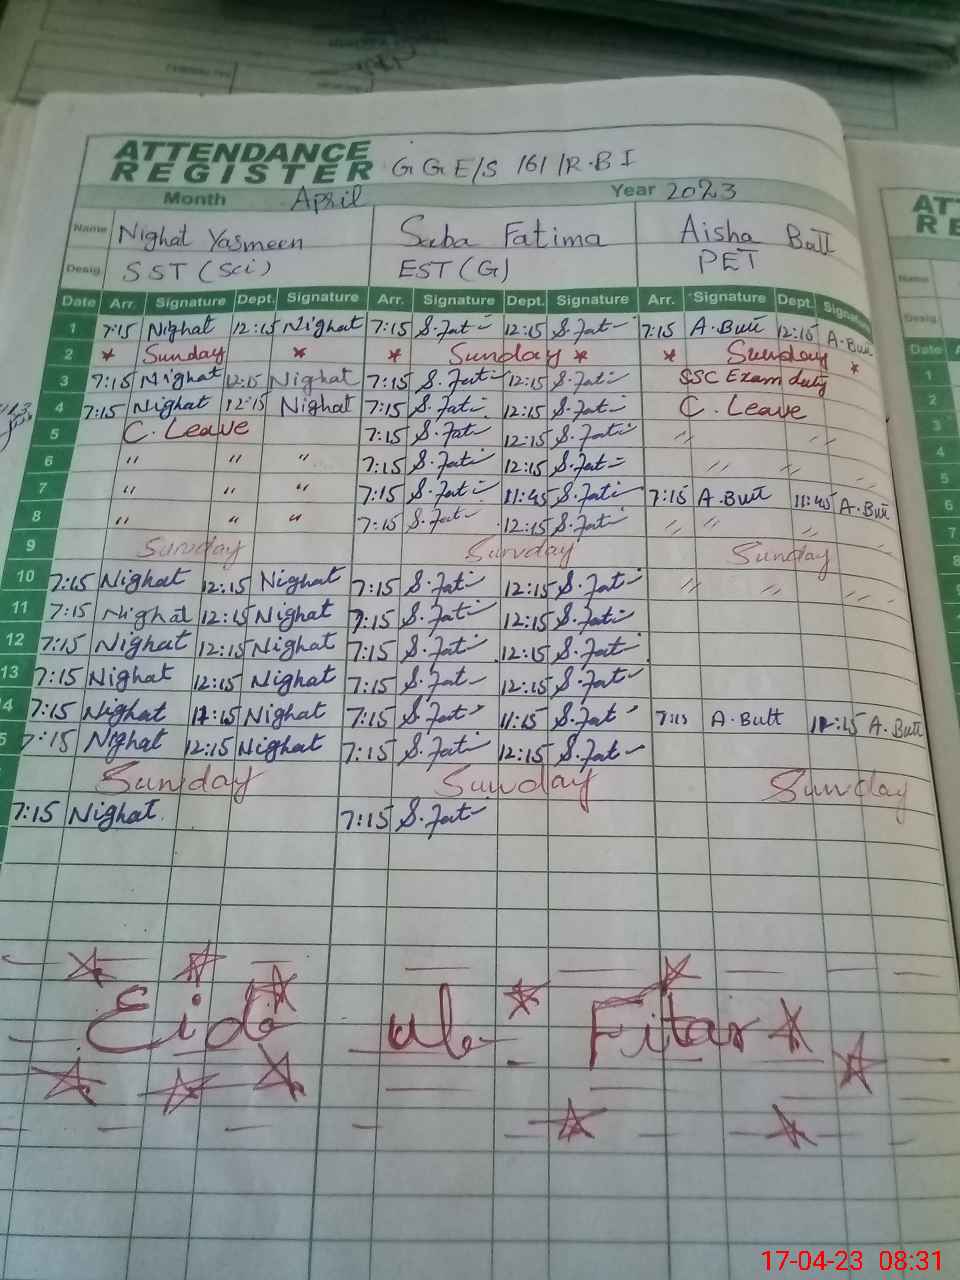 ATTENDANCE
REGISTER G G E/S 161/R.B I
Month April Year 2023
Name Nighat Yasmeen Saba Fatima Aisha Butt
Desig. SST (Sci) EST (G) PET
Date Arr. Signature Dept. Signature Arr. Signature Dept. Signature Arr. Signature Dept. Signature
1 7:15 Nighat 12:15 Nighat 7:15 S.Fati 12:15 S.Fati 7:15 A.Butt 12:15 A.Butt
2 * Sunday * * Sunday * * Sunday *
3 7:15 Nighat 12:15 Nighat 7:15 S.Fati 12:15 S.Fati SSC Exam duty
4 7:15 Nighat 12:15 Nighat 7:15 S.Fati 12:15 S.Fati C. Leave
5 C. Leave 7:15 S.Fati 12:15 S.Fati " "
6 " " " 7:15 S.Fati 12:15 S.Fati " " "
7 " " " 7:15 S.Fati 11:45 S.Fati 7:15 A.Butt 11:45 A.Butt
8 " " " 7:15 S.Fati 12:15 S.Fati " " "
9 Sunday Sunday Sunday
10 7:15 Nighat 12:15 Nighat 7:15 S.Fati 12:15 S.Fati " " "
11 7:15 Nighat 12:15 Nighat 7:15 S.Fati 12:15 S.Fati
12 7:15 Nighat 12:15 Nighat 7:15 S.Fati 12:15 S.Fati
13 7:15 Nighat 12:15 Nighat 7:15 S.Fati 12:15 S.Fati
4 7:15 Nighat 12:15 Nighat 7:15 S.Fati 11:15 S.Fati 7:15 A.Butt 12:15 A.Butt
5 7:15 Nighat 12:15 Nighat 7:15 S.Fati 12:15 S.Fati
Sunday Sunday Sunday
7:15 Nighat 7:15 S.Fati
Eid ul Fitar
AT
RE
Name
Desig.
Date
1
2
3
4
5
6
7
8
17-04-23 08:31